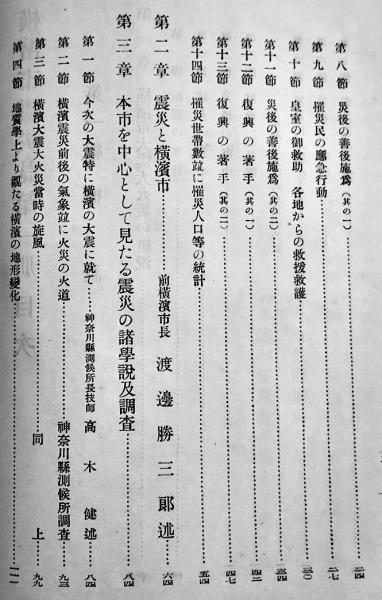 第八節 災後の善後施爲（其の一）…………二四
第九節 罹災民の應急行動…………二七
第十節 皇室の御救助 各地からの救援救護…………三〇
第十一節 災後の善後施爲（其の二）…………三四
第十二節 復興の著手（其の一）…………四三
第十三節 復興の著手（其の二）…………四七
第十四節 罹災世帶數竝に罹災人口等の統計…………五四
第二章 震災と橫濱市…………前橫濱市長 渡邊勝三郞述…………六四
第三章 本市を中心として見たる震災の諸學說及調査…………八四
第一節 今次の大震特に橫濱の大震に就て……神奈川縣測候所長技師 高木健述……八四
第二節 橫濱震災前後の氣象竝に火災の火道…………神奈川縣測候所調査……九三
第三節 橫濱大震大火災當時の旋風…………同上……九九
第四節 地質學上より觀たる橫濱の地形變化…………一一一